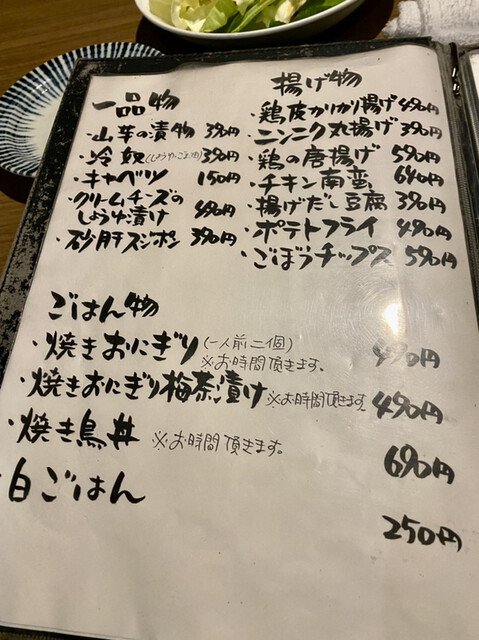 一品物
・山芋の漬物 390円
・冷奴(しょうゆ・ごま油) 390円
・キャベツ 150円
・クリームチーズの
しょうゆ漬け 490円
・砂肝スジポン 390円
揚げ物
・鶏皮かりかり揚げ 490円
・ニンニク丸揚げ 390円
・鶏の唐揚げ 590円
・チキン南蛮 640円
・揚げだし豆腐 390円
・ポテトフライ 490円
・ごぼうチップス 590円
ごはん物
・焼きおにぎり(一人前二個) 490円
※お時間頂きます。
・焼きおにぎり梅茶漬け ※お時間頂きます。 490円
・焼き鳥丼 ※お時間頂きます。 690円
・白ごはん 250円